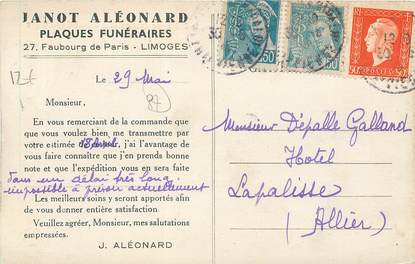 JANOT ALÉONARD
PLAQUES FUNÉRAIRES
27, Faubourg de Paris - LIMOGES
12€
Le 29 Mai
87
Monsieur,
En vous remerciant de la commande que
que vous voulez bien me transmettre par
votre estimée 18 Avril j'ai l'avantage de
vous faire connaître que j'en prends bonne
note et que l'expédition vous en sera faite
dans un délai très long
impossible à préson actuellement
Les meilleurs soins y seront apportés afin
de vous donner entière satisfaction.
Veuillez agréer, Monsieur, mes salutations
empressées.
J. ALÉONARD
Monsieur Dépalle Galland
Hotel
Lapalisse
(Allier)
50
50
50